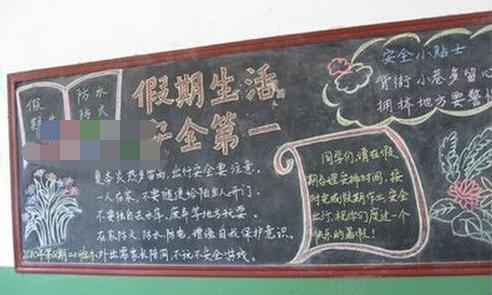 假期生活
安全第一
假期
防水
防火
夏季炎热多雷雨,出行安全要注意。
一人在家,不要随便给陌生人开门,
不要独自去水库,厦寿等地方玩耍
在家防火、防水、防电,增强自我保护意识。
外出需家长陪同,不玩不安全游戏。
同学们,请在假
期合理安排时间,按
时完成假期作业,安全
出行,祝你们度过一个
快乐的暑假!
安全小贴士
背街小巷多留心
拥挤地方要警惕